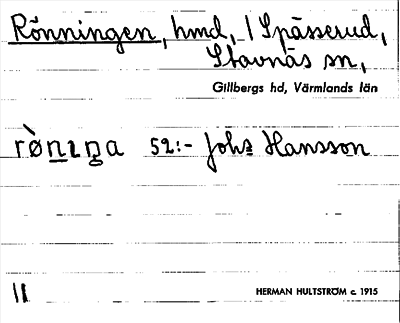 Rönningen, hmd, 1 Spässerud,
Stavnäs sn,
Gillbergs hd, Värmlands län
rø̀nıŋa 52:- Johs Hansson
11
HERMAN HULTSTRÖM c. 1915